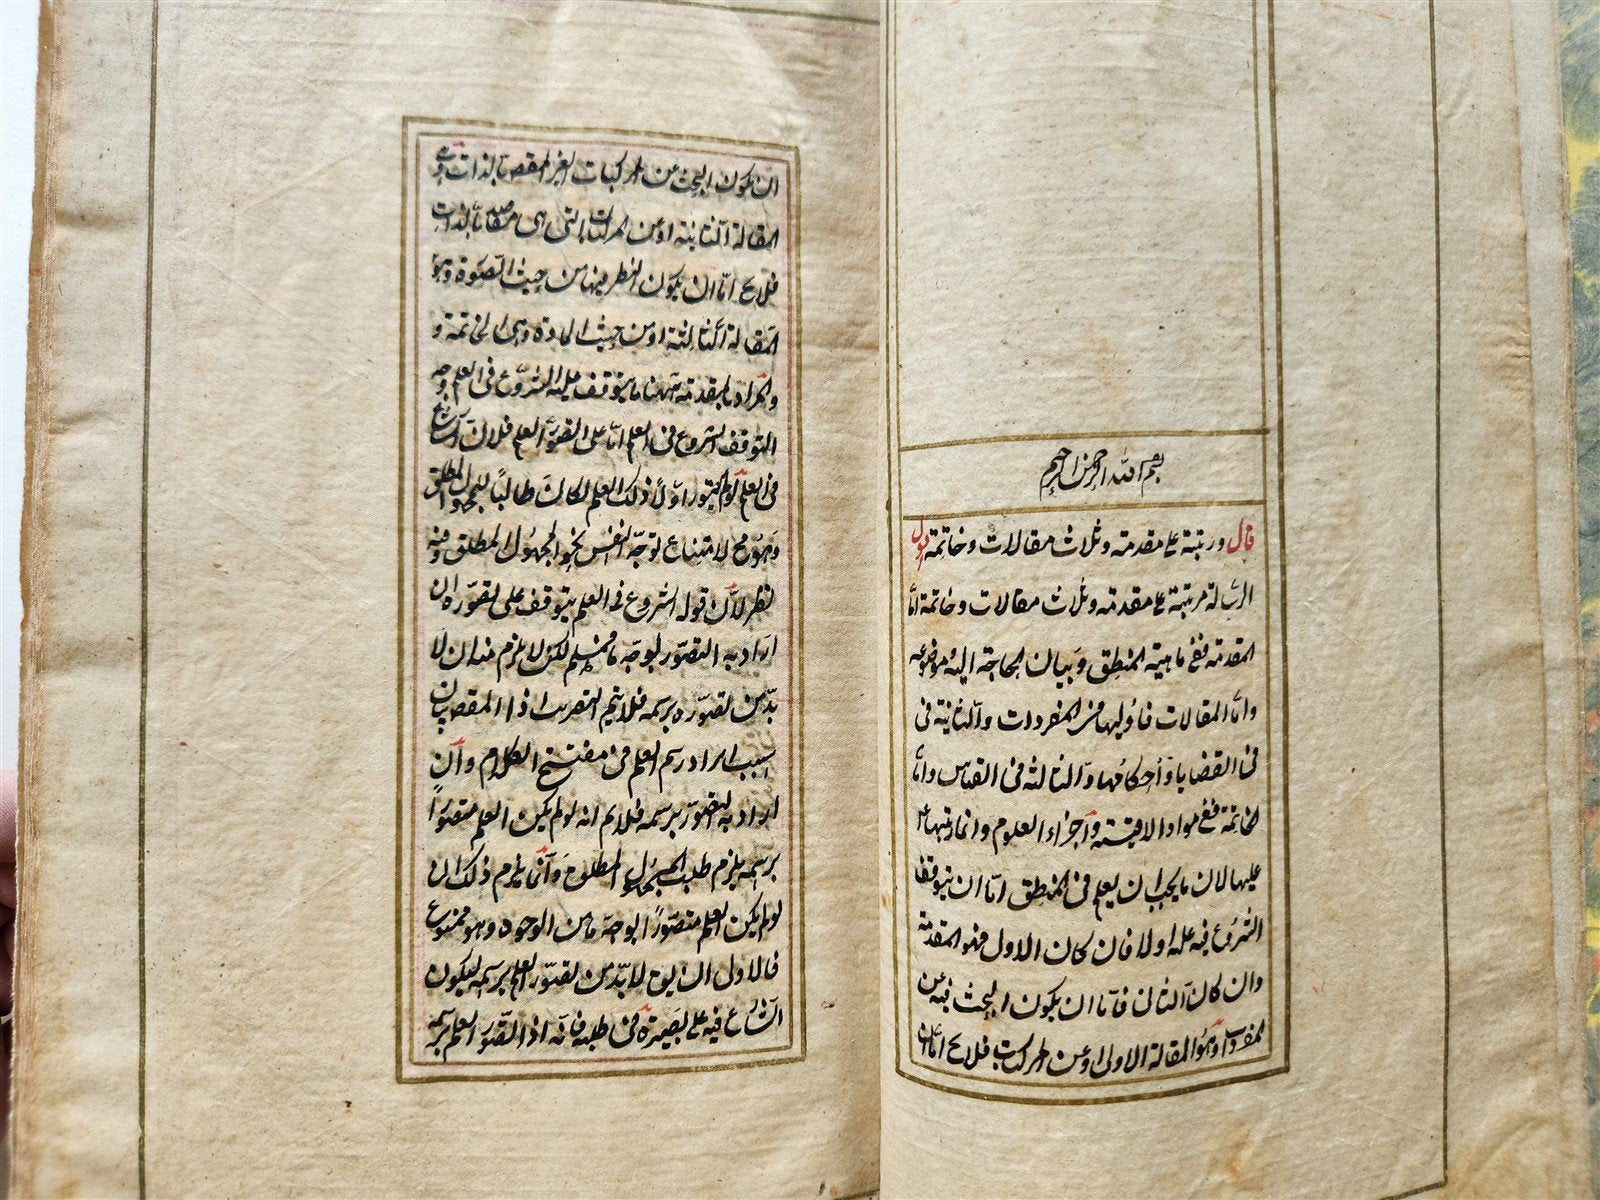 بسم الله الرحمن الرحيم
قال ورتبته على مقدمة وثلاث مقالات وخاتمة اقول
الرسالة مرتبة على مقدمة وثلاث مقالات وخاتمة اما
المقدمة ففى ماهية المنطق وبيان الحاجة اليه وموضوعه
واما المقالات فاوليها فى المفردات والثانية فى
فى القضايا واحكامها والثالثة فى القياس واما
الخاتمة ففى مواد الاقيسة واجزاء العلوم وانما رتبها
عليها لان ما يجب ان يعلم فى المنطق اما ان يتوقف
الشروع فيه عليه اولا فان كان الاول فهو المقدمة
وان كان الثانى فاما ان يكون البحث فيه عن
المفردات وهو المقالة الاولى او عن المركبات فلا يخ اما
ان يكون البحث عن المركبات الغير المقص بالذات وهى
المقالة الثانية او عن المركبات التى هى مقاصد بالذات
فلا يخ اما ان يكون النظر فيها من حيث الصورة وهو
المقالة الثالثة او من حيث المادة وهى الخاتمة و
والمراد بالمقدمة ههنا ما يتوقف عليه الشروع فى العلم وجه
التوقف الشروع فى العلم اما على تصور العلم فلان الشارع
فى العلم لو لم يتصور اولا ذلك العلم لكان طالبا للمجهول المطلق
وهو مح لامتناع توجه النفس نحو المجهول المطلق وفيه
نظر لان قوله الشروع فى العلم يتوقف على تصوره ان
اراد به التصور بوجه ما فمسلم لكن لا يلزم منه ان لا
بد من تصوره برسمه فلا يتم التقريب اذ المقص بيان
سبب ايراد رسم العلم فى مفتتح الكلام وان
اراد به التصور برسمه فلا نم انه لو لم يكن العلم متصورا
برسمه يلزم طلب المجهول المطلق وانما يلزم ذلك ان
لو لم يكن العلم متصورا بوجه ما من الوجوه وهو ممنوع
فالاولى ان يق لا بد من تصور العلم برسمه ليكون
الشارع فيه على بصيرة فى طلبه فانه اذا تصور العلم برسمه